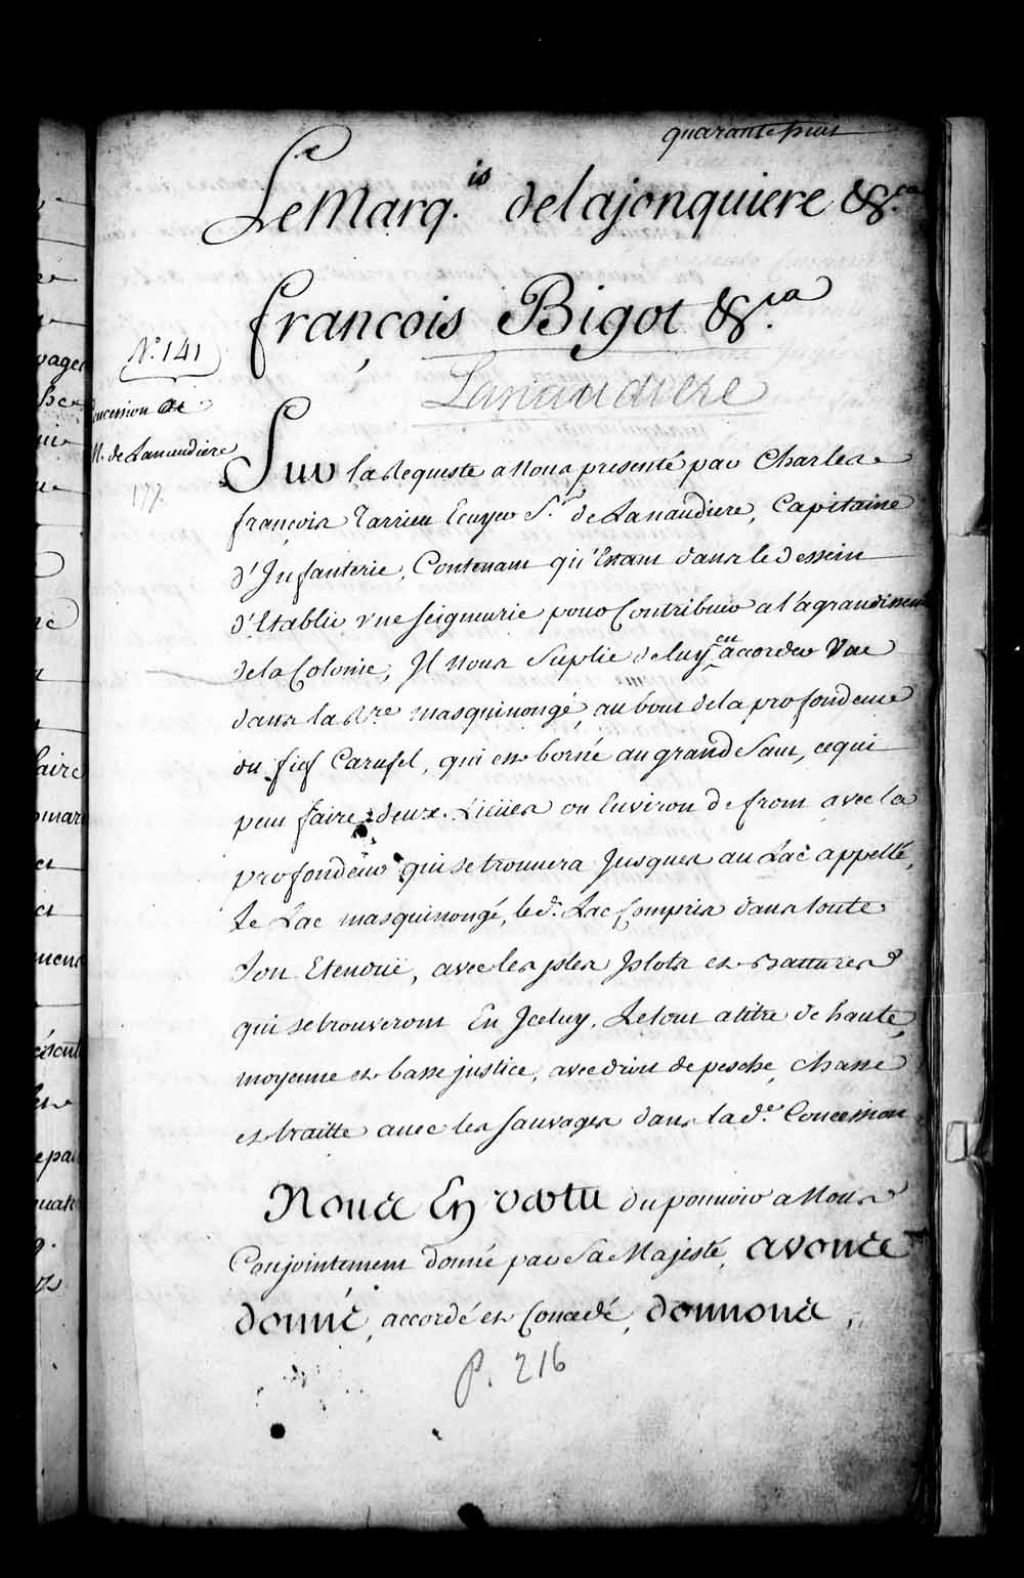 quarante huit
Le Marq.is de la jonquiere &.ca
françois Bigot &.ra
N.o 141
Lanaudiere
Concession de
M. de Lanaudiere
177.
Sur la Requeste a Nous presenté par Charles
françois Tarrieu Ecuyer S.r de Lanaudiere, Capitaine
d'Infanterie, Contenant qu'Etant dans le dessein
d'Etablir une seigneurie pour Contribuer a l'agrandissem
de la Colonie, Il Nous Suplie de luy en accorder Une
dans la R.re masquinongé, au bout de la profondeur
du fief Carufel, qui est borné au grand Saut, ce qui
peut faire deux Lieües ou Environ de front avec la
profondeur qui se trouvera Jusques au Lac appellé,
Le Lac masquinongé, led. Lac Compris dans toute
Son Etenduë, avec les jsles Jslots et Battures
qui se trouveront En Jceluy, Le tout a titre de haute,
moyenne et basse justice, avec droit de pesche, chasse
et traitte avec les sauvages dans lad.e Concession
Nous En vertu du pouvoir a Nous
Conjointement donné par Sa Majesté, avons
donné, accordé et Concedé, donnons,
p. 216